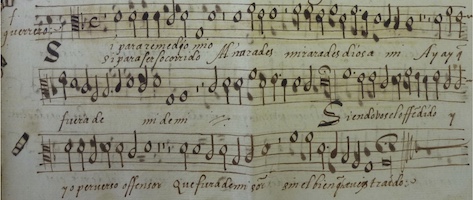 f.
guerrero
Si para remedio mio
Si para ser socorrido Al mirades mirarades dios a mi Ay ay q̃
fuera de mi de mi Siendo vos el offedido y
yo perverso offensor Que fuera de mi sin el bien q̃ aveys traido